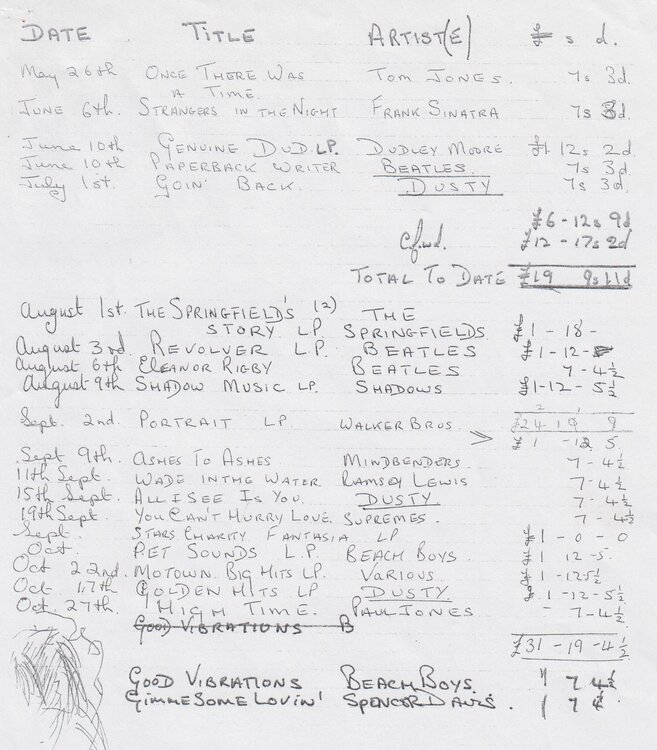 DATE TITLE ARTIST(E) £ s d.
May 26th ONCE THERE WAS TOM JONES. 7s 3d.
A TIME.
JUNE 6th. STRANGERS IN THE NIGHT FRANK SINATRA 7s 3d.
June 10th GENUINE DUD. LP. DUDLEY MOORE £1 12s 2d
June 10th PAPERBACK WRITER BEATLES. 7s 3d.
July 1st. GOIN' BACK. DUSTY 7s 3d.
£6 - 12s 9d
c.fwd. £12 - 17s 2d
TOTAL TO DATE £19 9s 11d
August 1st. THE SPRINGFIELD'S (2) THE
STORY LP. SPRINGFIELDS £1 - 18 -
August 3rd. REVOLVER L P. BEATLES £1 - 12 -
August 6th ELEANOR RIGBY BEATLES 7 - 4½
August 9th SHADOW MUSIC LP. SHADOWS £1-12 - 5½
Sept. 2nd. PORTRAIT LP. WALKER BROS £1 - 12 5.
Sept 9th. ASHES TO ASHES MINDBENDERS. 7 - 4½
11th Sept. WADE IN THE WATER. RAMSEY LEWIS 7 - 4½
15th Sept. ALL I SEE IS YOU. DUSTY. 7 - 4½
19th Sept. YOU CAN'T HURRY LOVE. SUPREMES. 7 - 4½
Sept. STARS CHARITY FANTASIA LP £1 - 0 - 0
Oct. PET SOUNDS L.P. BEACH BOYS. £1 12 - 5.
Oct 22nd. MOTOWN BIG HITS LP. VARIOUS. £1 - 12 5½
Oct. 17th GOLDEN HITS LP DUSTY. £1 - 12 - 5½
Oct. 27th. HIGH TIME. PAUL JONES - 7 - 4½
GOOD VIBRATIONS B
£31 - 19 - 4½
GOOD VIBRATIONS BEACH BOYS. 7 4½
GIMME SOME LOVIN' SPENCOR DAVIS. 7